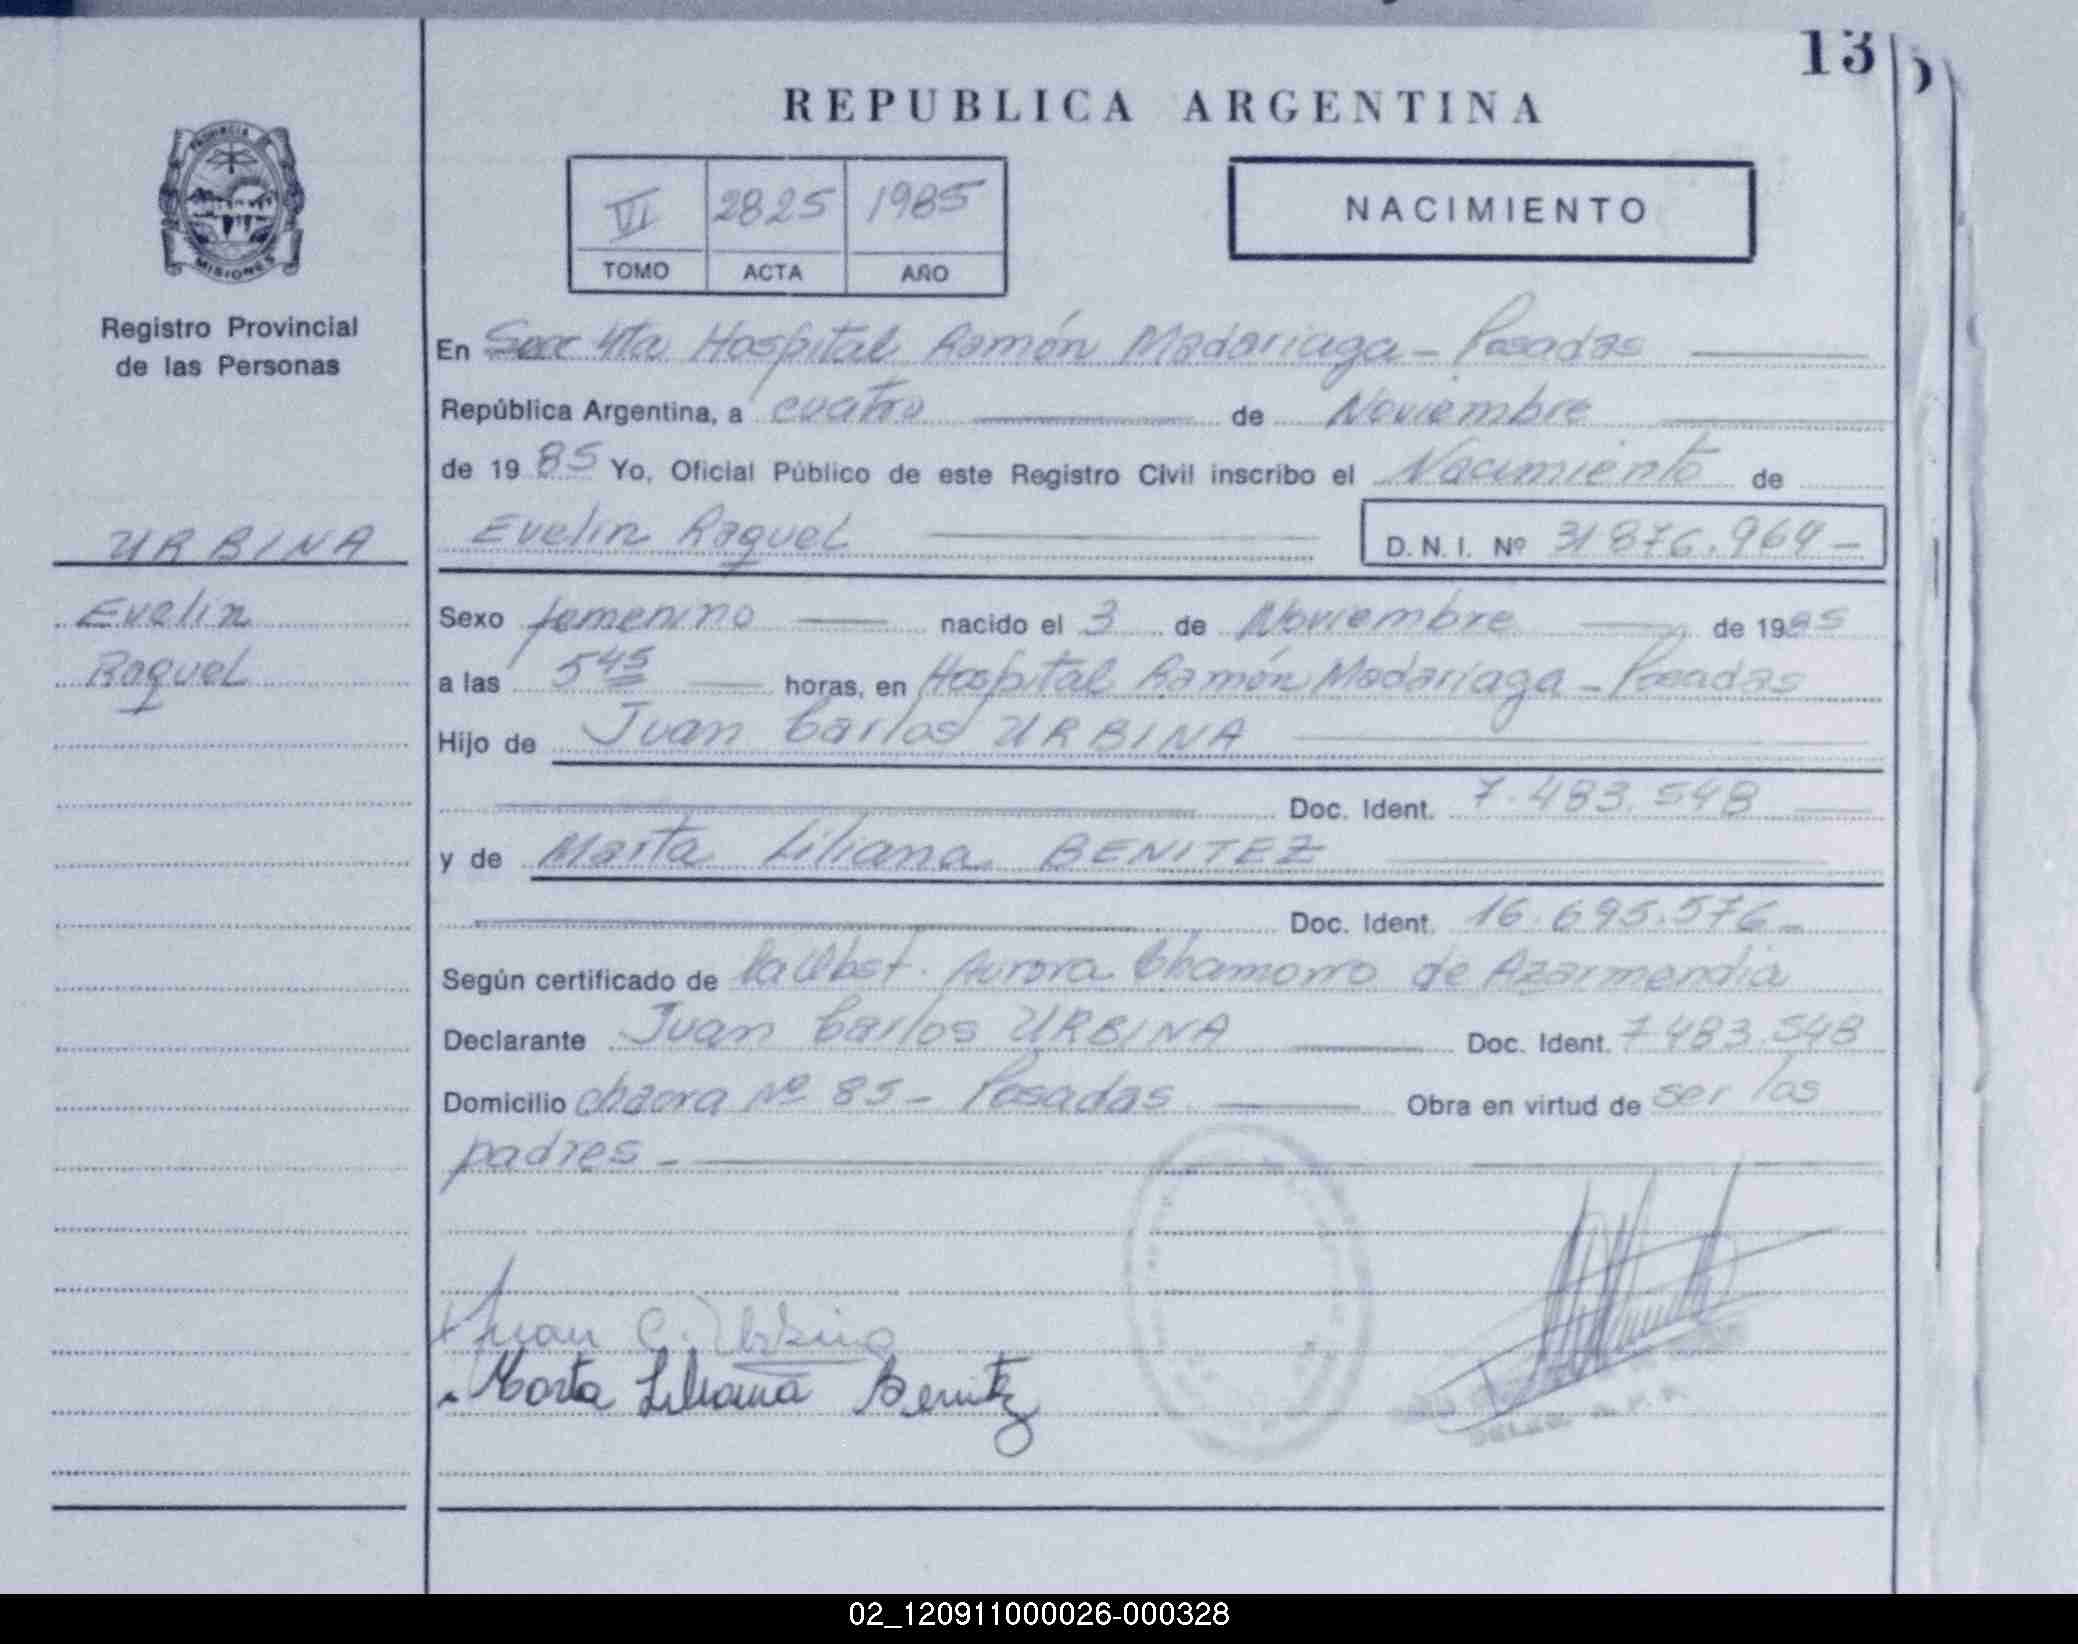 13
PROVINCIA
MISIONES
Registro Provincial
de las Personas
URBINA
Evelin
Raquel
REPUBLICA ARGENTINA
VI 2825 1985
TOMO ACTA AÑO
NACIMIENTO
En Secc 4ta Hospital Ramón Madariaga - Posadas
República Argentina, a cuatro de Noviembre
de 1985 Yo, Oficial Público de este Registro Civil inscribo el Nacimiento de
Evelin Raquel D. N. I. Nº 31876.964 -
Sexo femenino nacido el 3 de Noviembre de 1985
a las 5 45 horas, en Hospital Ramón Madariaga - Posadas
Hijo de Juan Carlos URBINA
Doc. Ident. 7.483.548
y de Marta Liliana BENITEZ
Doc. Ident. 16.695.576 -
Según certificado de la Obst. Aurora Chamorro de Azarmendia
Declarante Juan Carlos URBINA Doc. Ident. 7483.548
Domicilio chacra Nº 85 - Posadas Obra en virtud de ser los
padres -
Juan C. Urbina
Marta Liliana Benitez
02_120911000026-000328